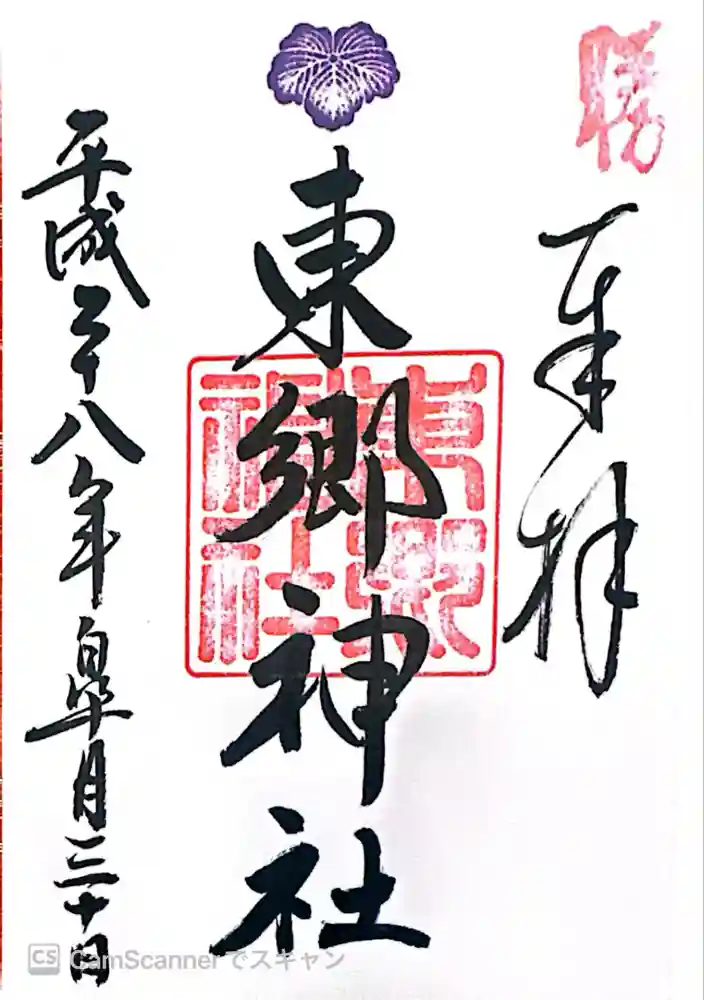 勝
奉拝
東郷神社
東郷神社
平成二十八年皐月三十日
CS CamScannerでスキャン